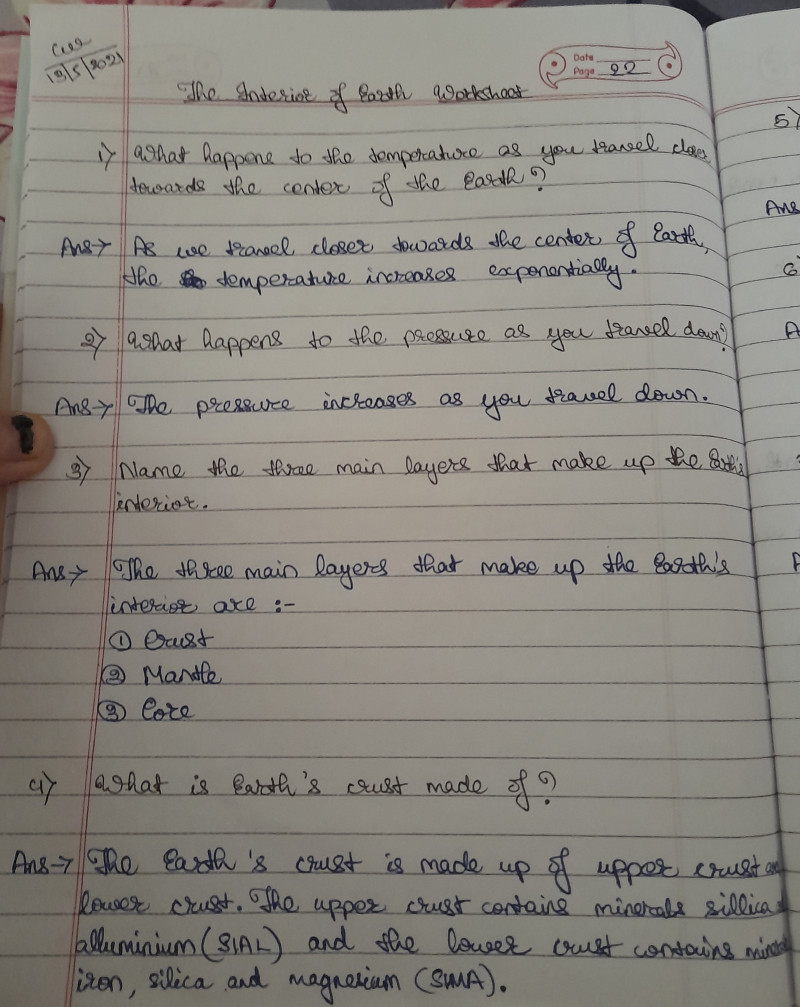 CW
19/5/2021
Date
Page 22
The Interior of Earth Worksheet
1) What happens to the temperature as you travel closer
towards the center of the Earth?
Ans→ As we travel closer towards the center of Earth,
the temperature increases exponentially.
2) What happens to the pressure as you travel down?
Ans→ The pressure increases as you travel down.
3) Name the three main layers that make up the Earth's
interior.
Ans→ The three main layers that make up the Earth's
interior are :-
① Crust
② Mantle
③ Core
4) What is Earth's crust made of?
Ans→ The Earth's crust is made up of upper crust and
lower crust. The upper crust contains minerals sillica
alluminium (SIAL) and the lower crust contains
iron, silica and magnesium (SIMA).
5)
Ans
6
A